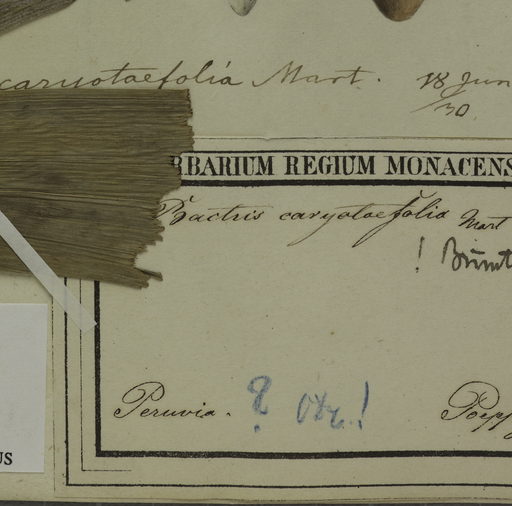 caryotaefolia Mart. 18 Jun
/30
RBARIUM REGIUM MONACENS
Bactris caryotaefolia Mart
!
Peruvia. ? !
Poepp
US